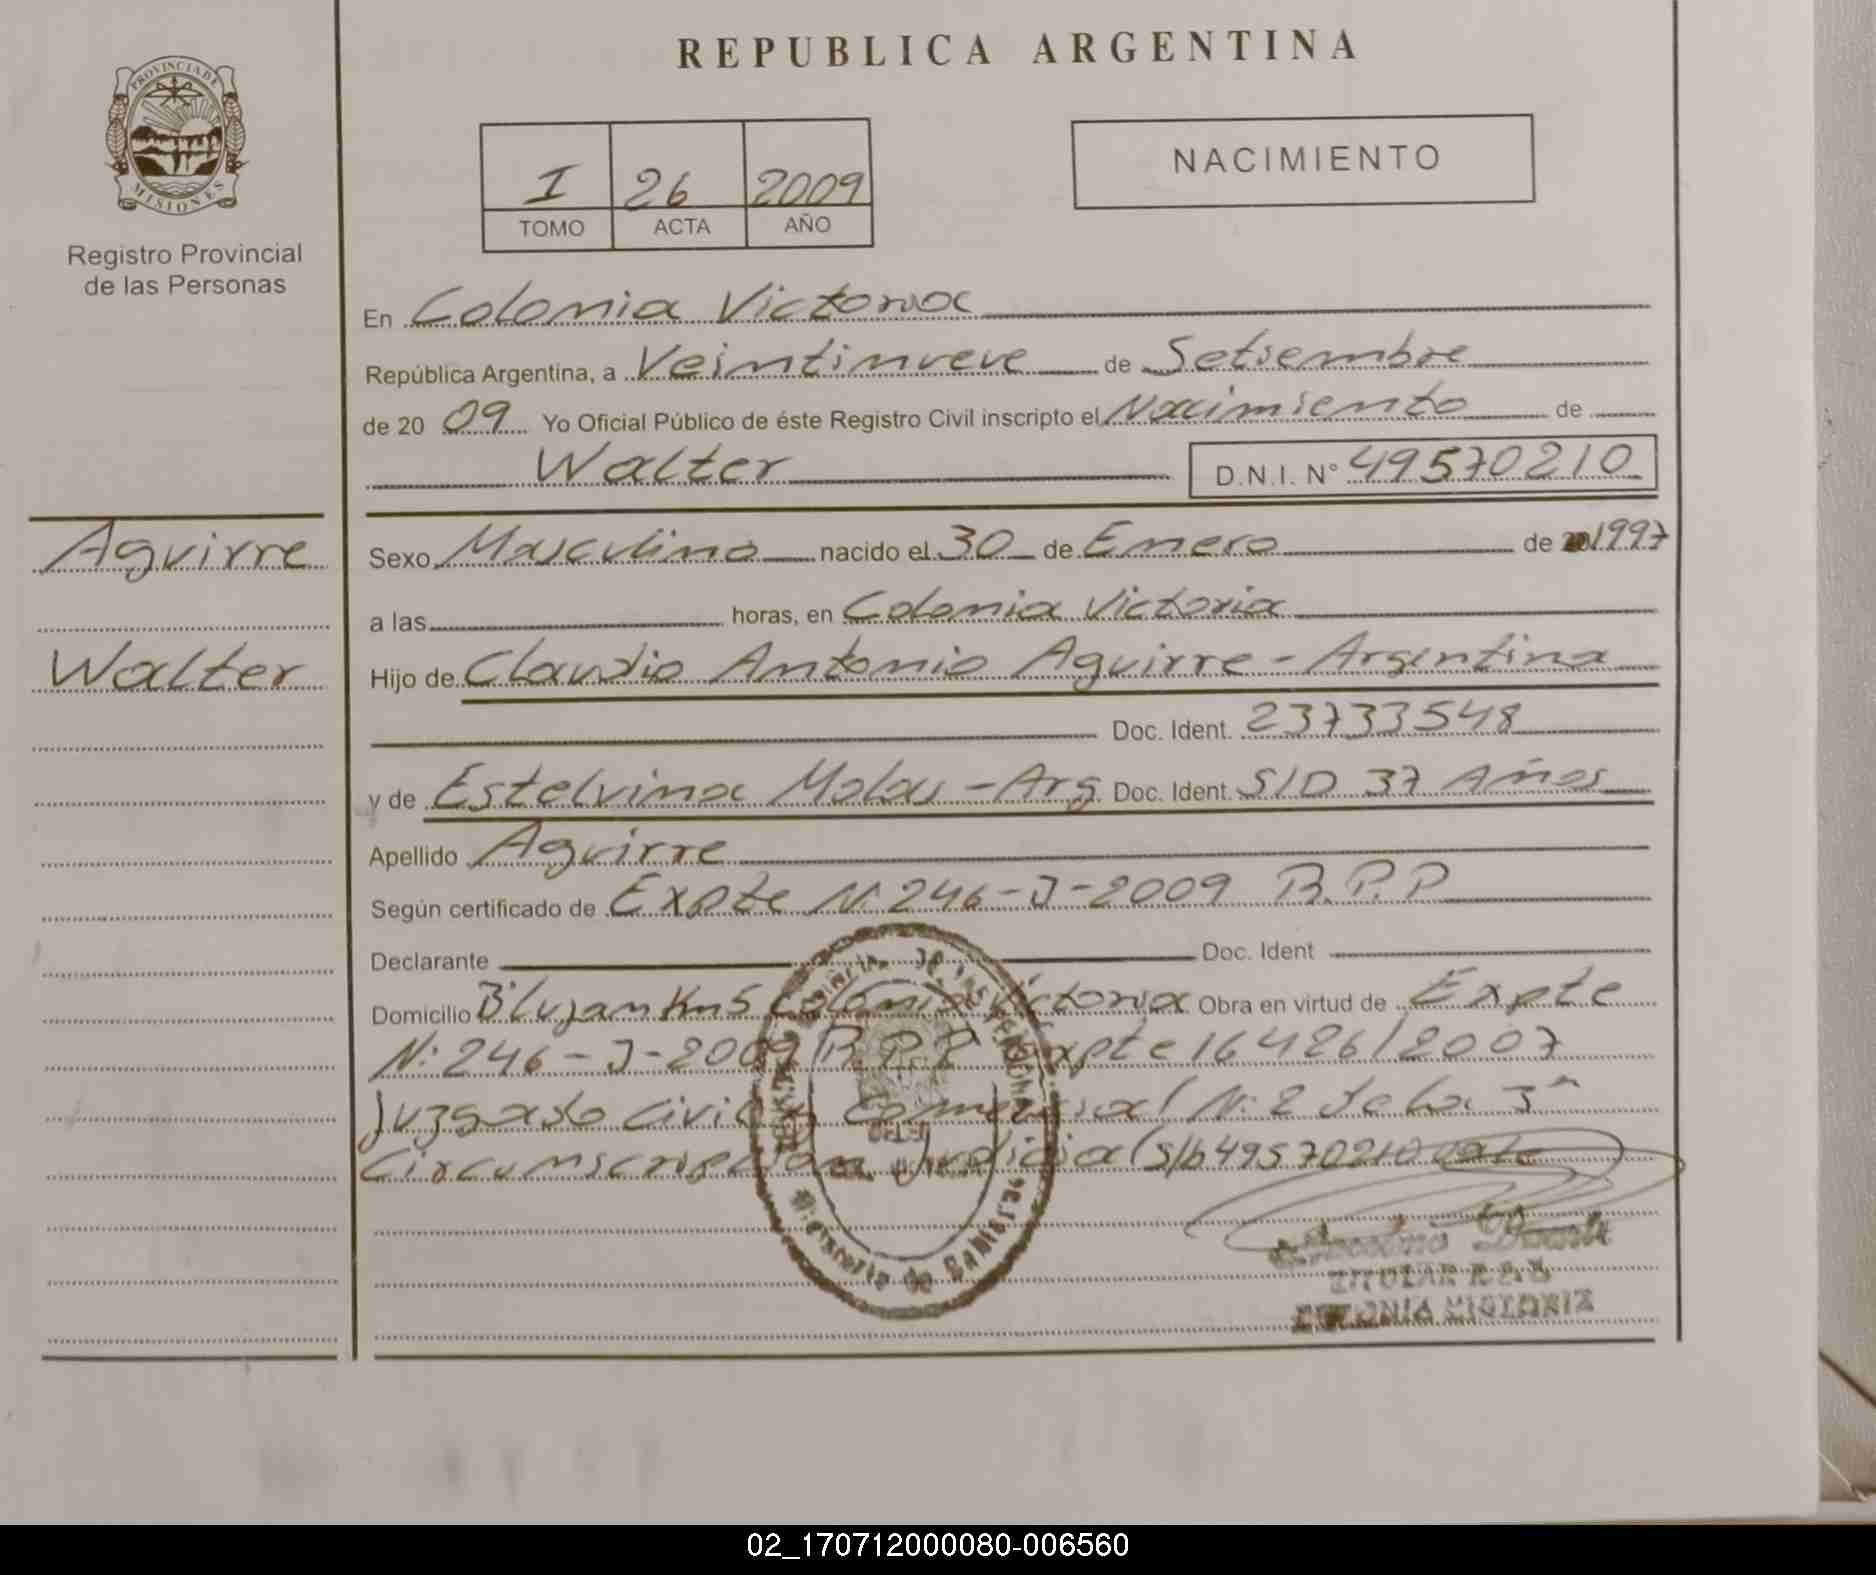 PROVINCIA DE
MISIONES
Registro Provincial
de las Personas
Aguirre
Walter
REPUBLICA ARGENTINA
I 26 2009
TOMO ACTA AÑO
NACIMIENTO
En Colonia Victoria
República Argentina, a Veintinueve de Setiembre
de 20 09 Yo Oficial Público de éste Registro Civil inscripto el Nacimiento de
Walter D.N.I. N° 49570210
Sexo Masculino nacido el 30 de Enero de 1997
a las horas, en Colonia Victoria
Hijo de Claudio Antonio Aguirre - Argentina
Doc. Ident. 23733548
y de Estelvina Molas - Arg Doc. Ident. S/D 37 Años
Apellido Aguirre
Según certificado de Expte N: 246-J-2009 R.P.P
Declarante Doc. Ident
Domicilio B° Lujan Km 5 Colonia Victoria Obra en virtud de Expte
N: 246-J-2009 R.P.P Expte 16426/2007
Juzgado Civil y Comercial N: 2 de la 3ª
Circunscripcion Judicial S/b 49570210 vale
TITULAR
COLONIA VICTORIA
02_170712000080-006560